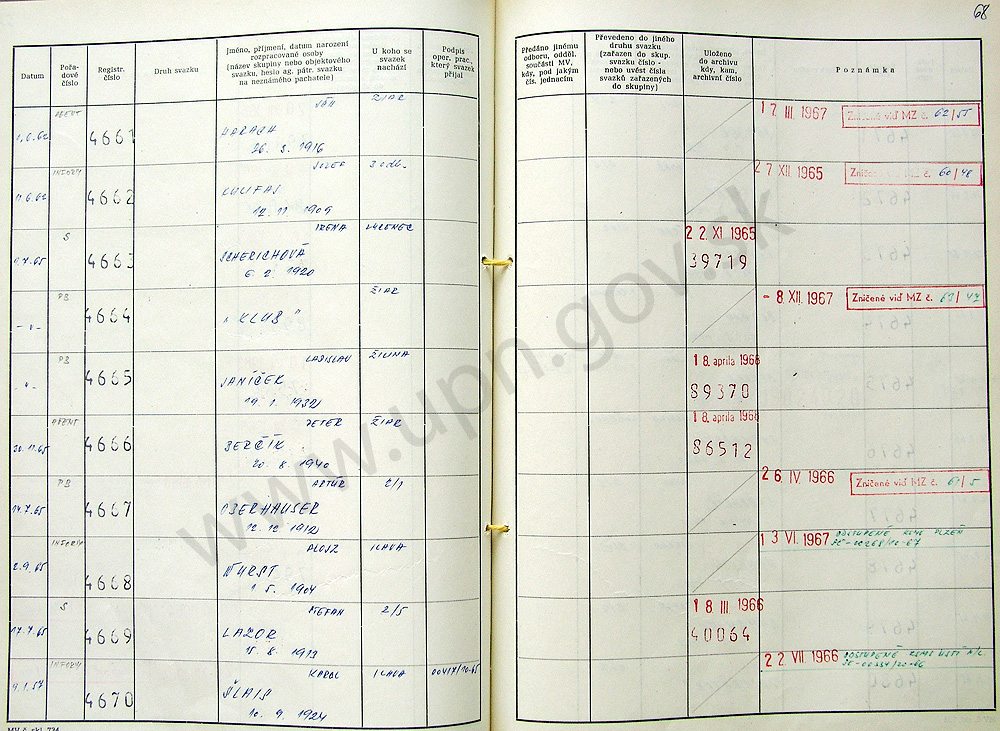 68
Datum
Pořadové číslo
Registr. číslo
Druh svazku
Jméno, příjmení, datum narození
rozpracované osoby
(název skupiny nebo objektového
svazku, heslo ag. pátr. svazku
na neznámého pachatele)
U koho se
svazek
nachází
Podpis
oper. prac.,
který svazek
přijal
Předáno jinému
odboru, odděl.
součásti MV,
kdy, pod jakým
čís. jednacím
Převedeno do jiného
druhu svazku
(zařazen do skup.
svazku číslo -
nebo uvést čísla
svazků zařazených
do skupiny)
Uloženo
do archivu
kdy, kam,
archivní číslo
Poznámka
AGENT
JÁN ŽIAR
1.6.62 4661
26. 3. 1916
17 III 1967 Zničené viď MZ č. 62/55
INFORM
JOZEF 3. odb.
11.6.62 4662
12. 11. 1909
27 XII 1965 Zničené viď MZ č. 60/48
S
IRENA LUČENEC
4663 SCHERICHOVÁ
6. 2. 1920
22. XI 1965
39719
PB
ŽIAR
- " - 4664 "KLUB"
- 8 XII. 1967 Zničené viď MZ č. 62/47
PB
LADISLAV ŽILINA
- " - 4665 JANÍČEK
19. 1. 1932
18. apríla 1966
89370
AGENT
PETER ŽIAR
20.11.65 4666 BERČÍK
20. 8. 1940
18. apríla 1966
86512
PB
ARTÚR 2/1
14.7.65 4667 OBERHAUSER
12. 12. 1912
26 IV. 1966 Zničené viď MZ č. 61/5
INFORM
ALOJZ ILAVA
2.9.65 4668 WURST
1. 5. 1904
13 VI. 1967 ODSTUPENÉ KSMV PLZEŇ
S
ŠTEFAN 2/5
17.7.65 4669 LAZOR
15. 8. 1919
18 III 1966
40064
INFORM
KAROL ILAVA
9.1.57 4670 ŠLAIS
10. 9. 1924
22. VII 1966 ODSTUPENÉ
www.upn.gov.sk